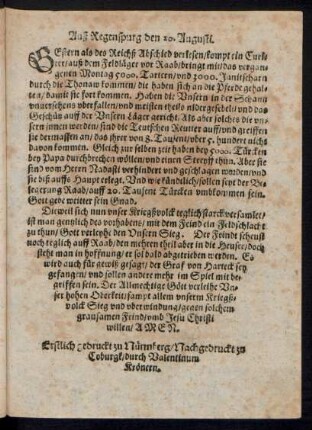 Auß Regenspurg den 20. Augusti.
GEstern als des Reichß Abschied verlesen/kompt ein Curi-
rer/auß dem Feldläger vor Raab/bringt mit/das vergan
genen Montag 5000. Tartern/vnd 2000. Janitscharn
durch die Thonaw kommen/die haben sich an die Pferde gehal-
ten/damit sie fort kommen. Haben die Vnsern in der Schantz
vnuersehens vberfallen/vnd meisten theils nider gesebelt/vnd das
Geschütz auff der Vnsern Läger gericht. Als aber solches die vn-
sern innen worden/sind die Teutschen Reutter auff/vnd greiffen
sie dermassen an/das jhrer von 8. Taussent/vber 5. hundert nicht
dauon kommen. Gleich zur selben zeit haben bey 5000. Türcken
bey Papa durchbrechen wöllen/vnd einen Streyff thun. Aber sie
sind vom Herrn Nadasti verhindert vnd geschlagen worden/vnd
sie biß auffs Haupt erlegt. Vnd wie kündlich/sollen seyt der Be
legerung Raab/auff 20. Tausent Türcken vmbkommen sein.
Gott gebe weitter sein Gnad.
Dieweil sich nun vnser Kriegßvolck teglich starck versamlet/
ist man gentzlich des vorhabens/mit dem Feind ein Feldschlacht
zu thun/Gott verleyhe den Vnsern Sieg. Der Feindt scheust
noch teglich auff Raab/den mehren theil aber in die Heuser/doch
steht man in hoffnung/er sol bald abgetrieben werden. Es
wird auch für gewiß gesagt/der Graf von Hardeck sey
gefangen/vnd sollen andere mehr im Spiel mit be-
griffen sein. Der Allmechtige Gott verleihe Vn-
ser hohen Oberkeit/sampt allem vnserm Kriegß-
volck Sieg vnd vberwindung/gegen solchem
grausamen Feind/vmb Jesu Christi
willen/AMEN.
Erstlich gedruckt zu Nürmberg/Nachgedruckt zu
Coburgk/durch Valentinum
Krönern.